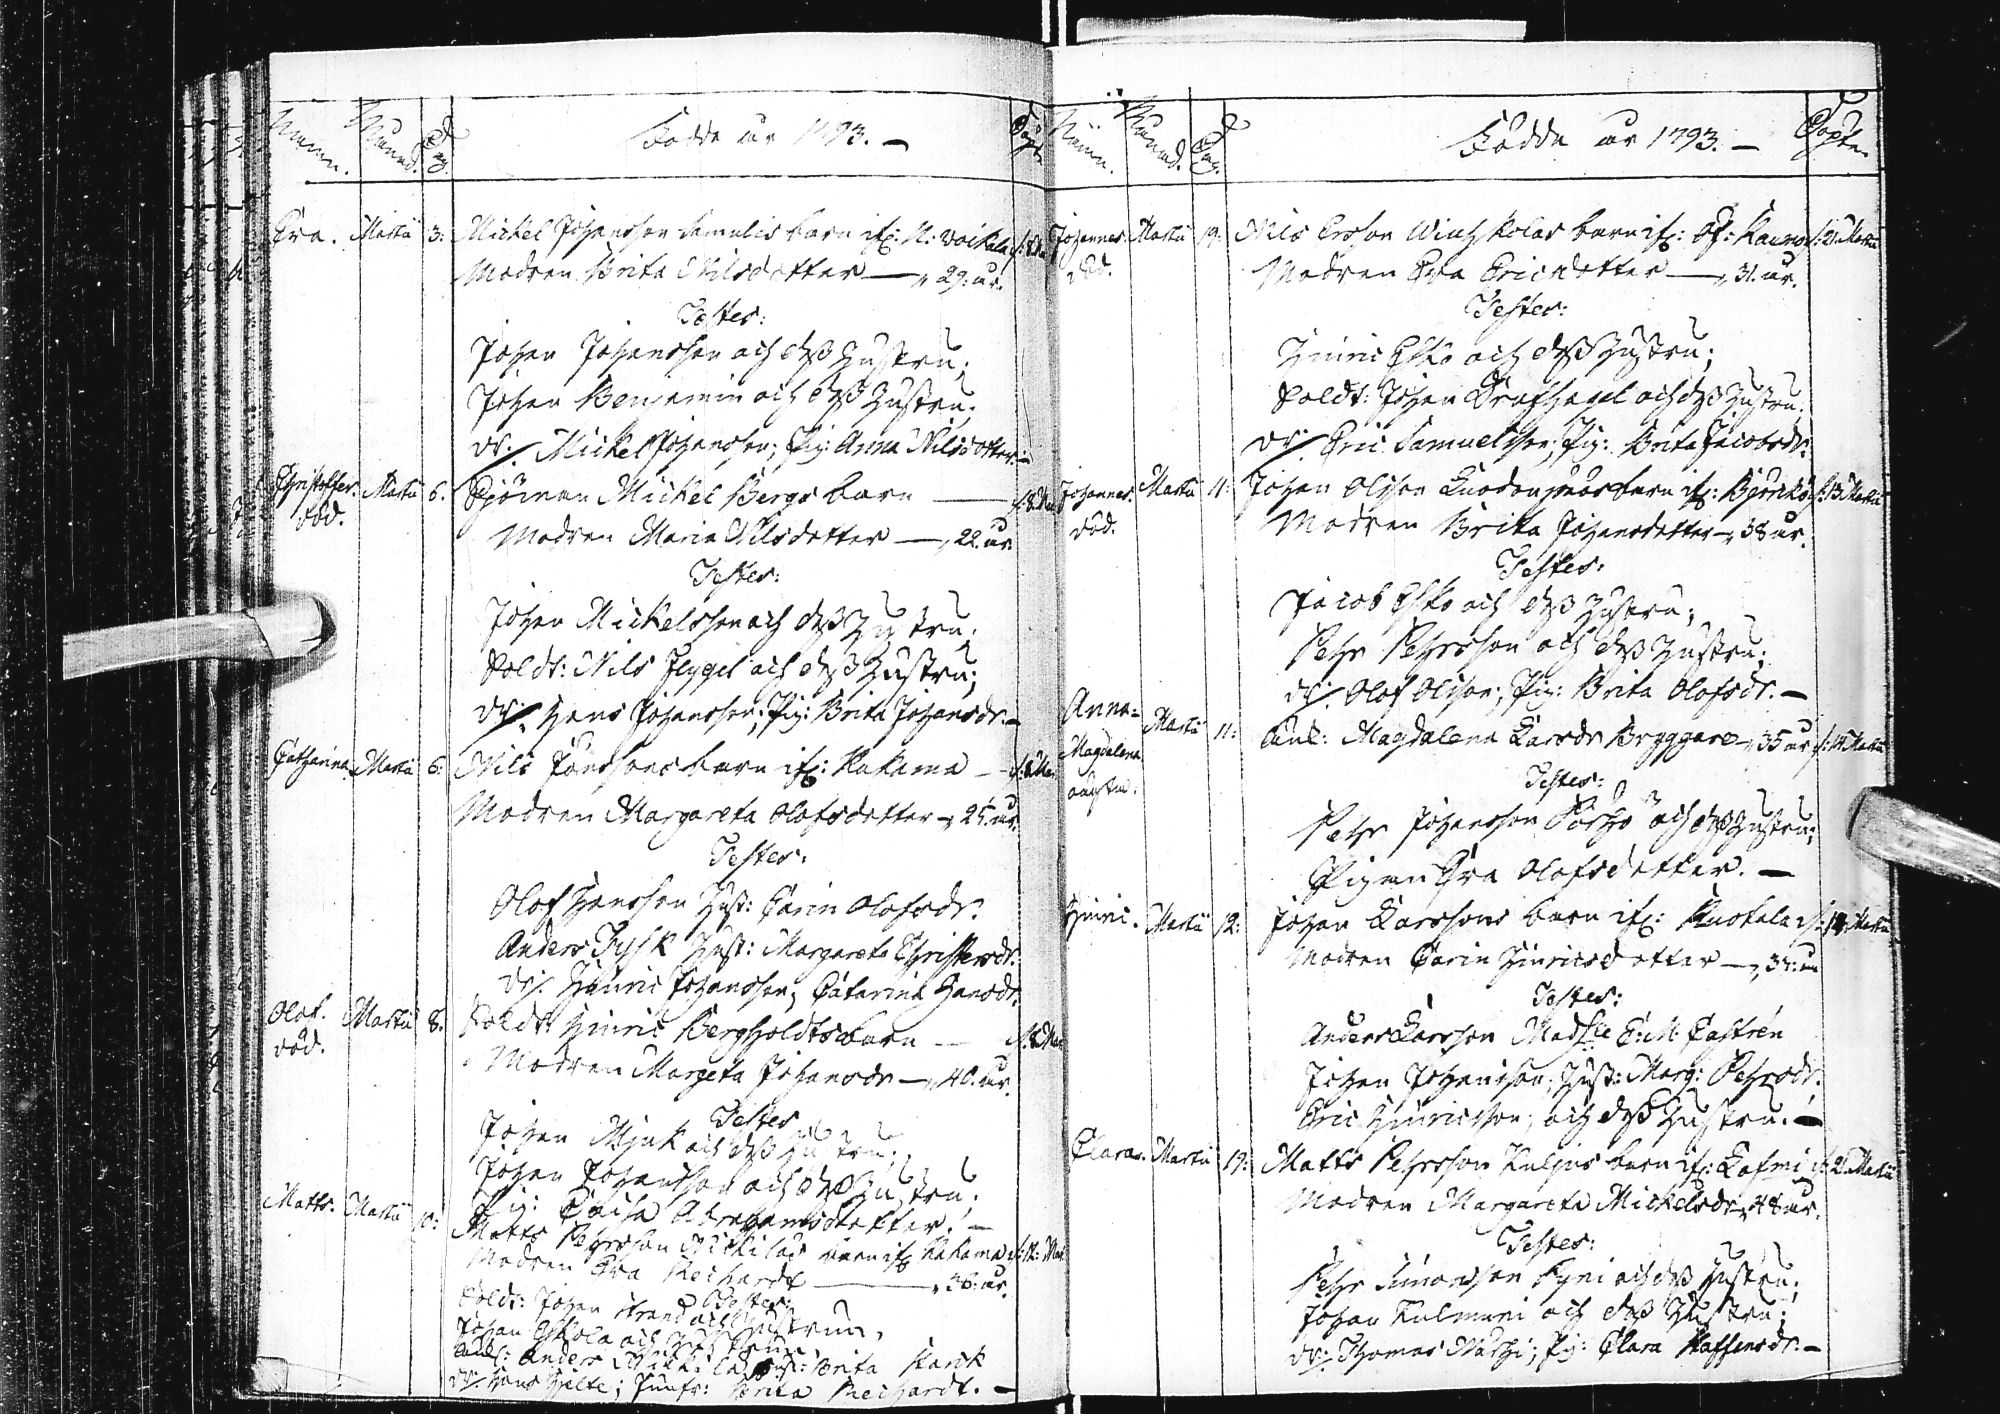 Namn. Månad. Dag. Födde år 1793. — Döpte
Eva. Martii 3: Michel Johansson Samulis barn ifr: N: Voikala
Modren Brita Nilsdotter — 29: år.
Testes:
Johan Johansson och dess Hustru;
Johan Benjamin och dess Hustru;
dr: Michel Johansson; Pig: Anna Nilsdotter. —
Christopher. död. Martii 6. Michel Bergs barn — d: 8 Mar
Modren Maria Nilsdotter — 22. år.
Testes:
Johan Mickelsson och dess Hustru;
Soldt: Nils Flygel och dess Hustru;
dr: Hans Johansson; Pig: Brita Johansdr. —
Catharina Martii 6: Nils Jönssons barn ifr: Kakama — d: 8 Mar
Modren Margareta Olofsdotter — 25. år.
Testes:
Olof Hansson Hust: Carin Olofsdr.
Anders Fysk Hust: Margareta Christersdr.
dr. Hinric Johansson; Catarina Hansdr.
Olof. död. Martii 8. Soldt: Hinric Bergholdts barn — d: 8 Mar
Modren Margeta Johansdr — 40. år.
Testes
Johan Mjuk och dess Hustru;
Johan Johansson och dess Hustru;
Pig: Caisa Abrahamsdotter. —
Matts. Martii 10: Matts Pehrsson Nickilas barn ifr Kakama d: 12: Mar
Modren Eva Rechardt — 36: år.
Testes:
Soldt: Johan Strand och Hustrun,
Johan Yskola och Hustrun
Anders Nikkila Hust: Brita Starck
dr. Hans Hjelte; Jumfr: Brita Rechardt. —
Namn. Månad. Dag. Födde år 1793. — Döpte
Johannes död. Martii 19: Nils Ersson barn ifr: Of: Kauno d: 21 Martii
Modren Eva Ericsdotter — 31. år.
Testes:
Hinric Esko och dess Hustru;
Soldt: Johan Krafhagel och dess Hustru;
dr: Eric Samuelsson; Pig: Brita Jacobsdr.
Johannes. död. Martii 11: Johan Olsson barn ifr: Björkö d: 13 Martii
Modren Brita Johansdotter — 38 år.
Testes:
Jacob Esko och dess Hustru;
Pehr Pehrsson och dess Hustru;
dr: Olof Olsson; Pig: Brita Olofsdr. —
Anna= Magdalena Martii 11: Enk: Magdalena Larsdr Bryggare 35 år d: 14 Martii
Testes:
Pehr Johansson Pörhö och dess Hustru;
Pigan Eva Olofsdotter. —
Hinric. Martii 12: Johan Larssons barn ifr: Kuckala d: 14 Martii
Modren Carin Hinricsdotter —
Testes:
Anders Larsson Madslle C: M: Castrén
Johan Johansson; Hust: Marg: Pehrsdr.
Eric Hinricsson; och dess Hustru. —
Clara. Martii 19: Matts Pehrsson Kuljus barn ifr: d: 21 Martii
Modren Margareta Mickelsdr 48 år.
Testes:
Pehr Simonsson Kyni och dess Hustru;
Johan Kulmuni och dess Hustru;
dr: Thomas Mathi; Pig: Clara Staffansdr. —